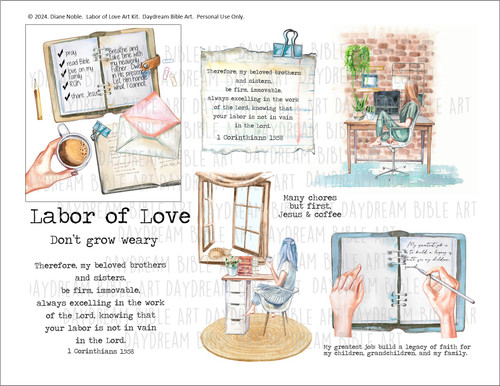 © 2024. Diane Noble. Labor of Love Art Kit. Daydream Bible Art. Personal Use Only.
pray
read Bible
love on my family
work
share Jesus
Breathe and
take time with
my heavenly
Father. Dwell
in His presence.
Let Him handle
what I cannot.
Therefore, my beloved brothers
and sisters,
be firm, immovable,
always excelling in the work
of the Lord, knowing that
your labor is not in vain
in the Lord.
1 Corinthians 15:58
Labor of Love
Don't grow weary
Therefore, my beloved brothers
and sisters,
be firm, immovable,
always excelling in the work
of the Lord, knowing that
your labor is not in vain
in the Lord.
1 Corinthians 15:58
Many chores
but first,
Jesus & coffee
My greatest job is
to build a legacy of
faith for my children,
My greatest job build a legacy of faith for
my children, grandchildren, and my family.
DAYDREAM BIBLE ART